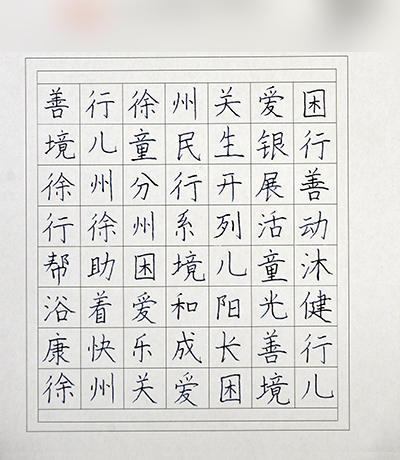 善行徐州关爱困
境儿童民生银行
徐州分行开展善
行徐州系列活动
帮助困境儿童沐
浴着爱和阳光健
康快乐成长善行
徐州关爱困境儿